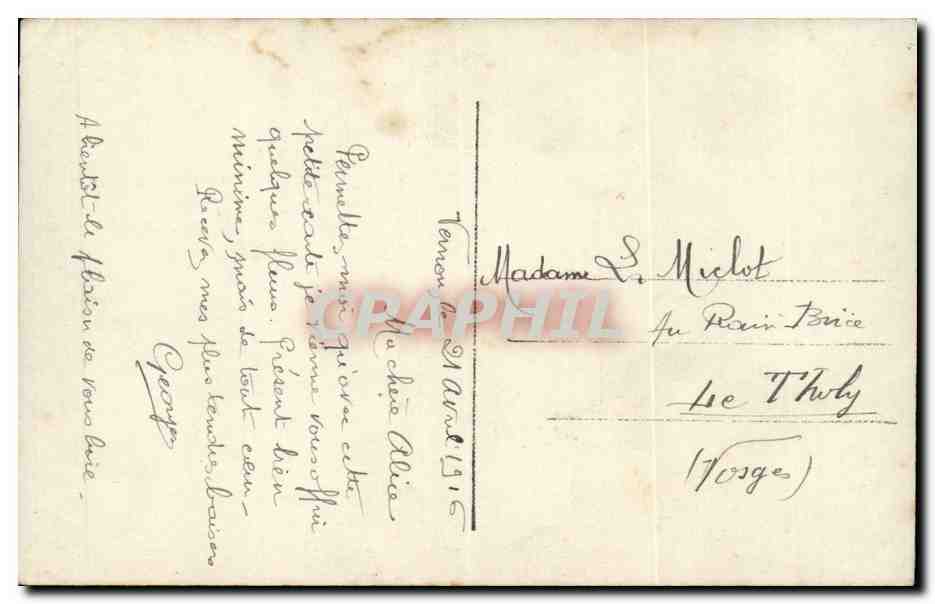 Vernon le 21 avril 1916
Ma chère Alice
Permettez moi qu'avec cette
petite carte je vienne vous offrir
quelques fleurs. Présent bien
minime, mais de tout cœur
Recevez mes plus tendres baisers
Georges
A bientôt le plaisir de vous lire.
Madame L. Miclot
Au Rain Brice
Le Tholy
(Vosges)
CPAPHIL